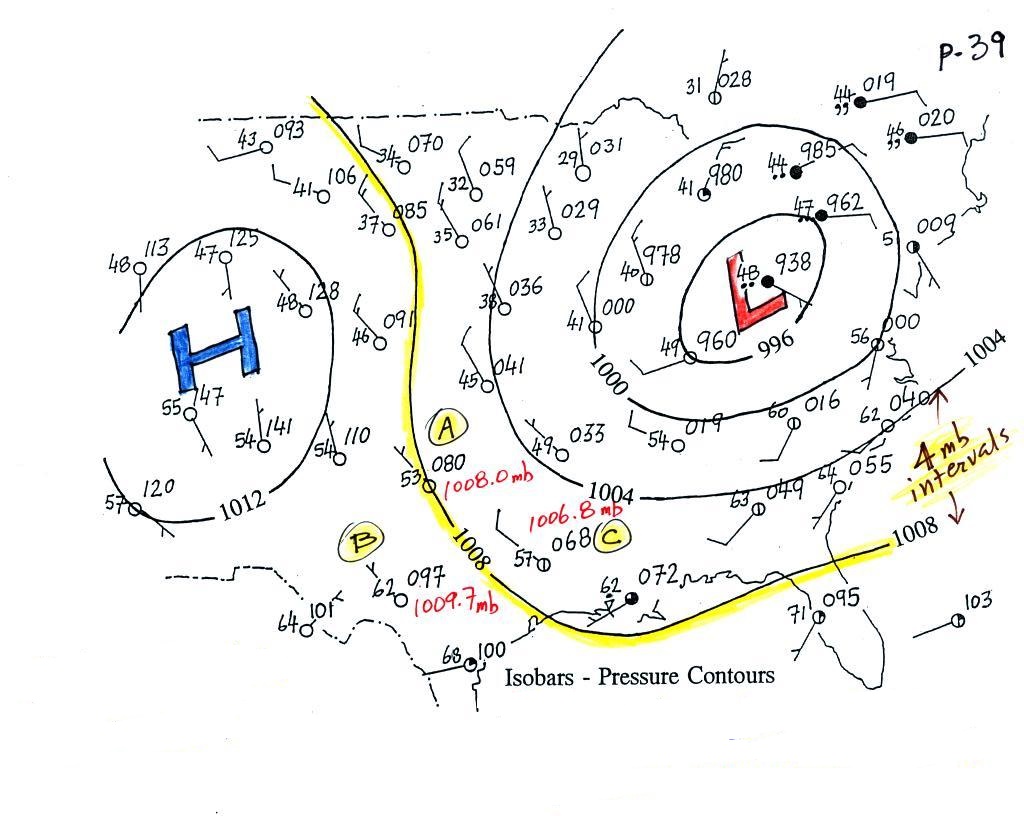 P-39
31 028
44 019
,,
46 020
,,
43 093
34 070
29 031
44 985
41 980
41 106
32 059
47 962
37 085
35 061
33 029
5 009
48 113
47 125
40 978
48 938
48 128
38 036
H
L
46 091
41 000
49 960
996
56 000
1004
1000
45 041
55 147
62 040
54 141
54 110
A
60 016
62
4 mb
intervals
49 033
54 019
53 080
1008.0 mb
64 055
57 120
1012
1004
63 049
1006.8 mb
B
1008
57 068 C
1008
62 097
1009.7 mb
62 072
64 101
71 095
103
68 100
Isobars - Pressure Contours